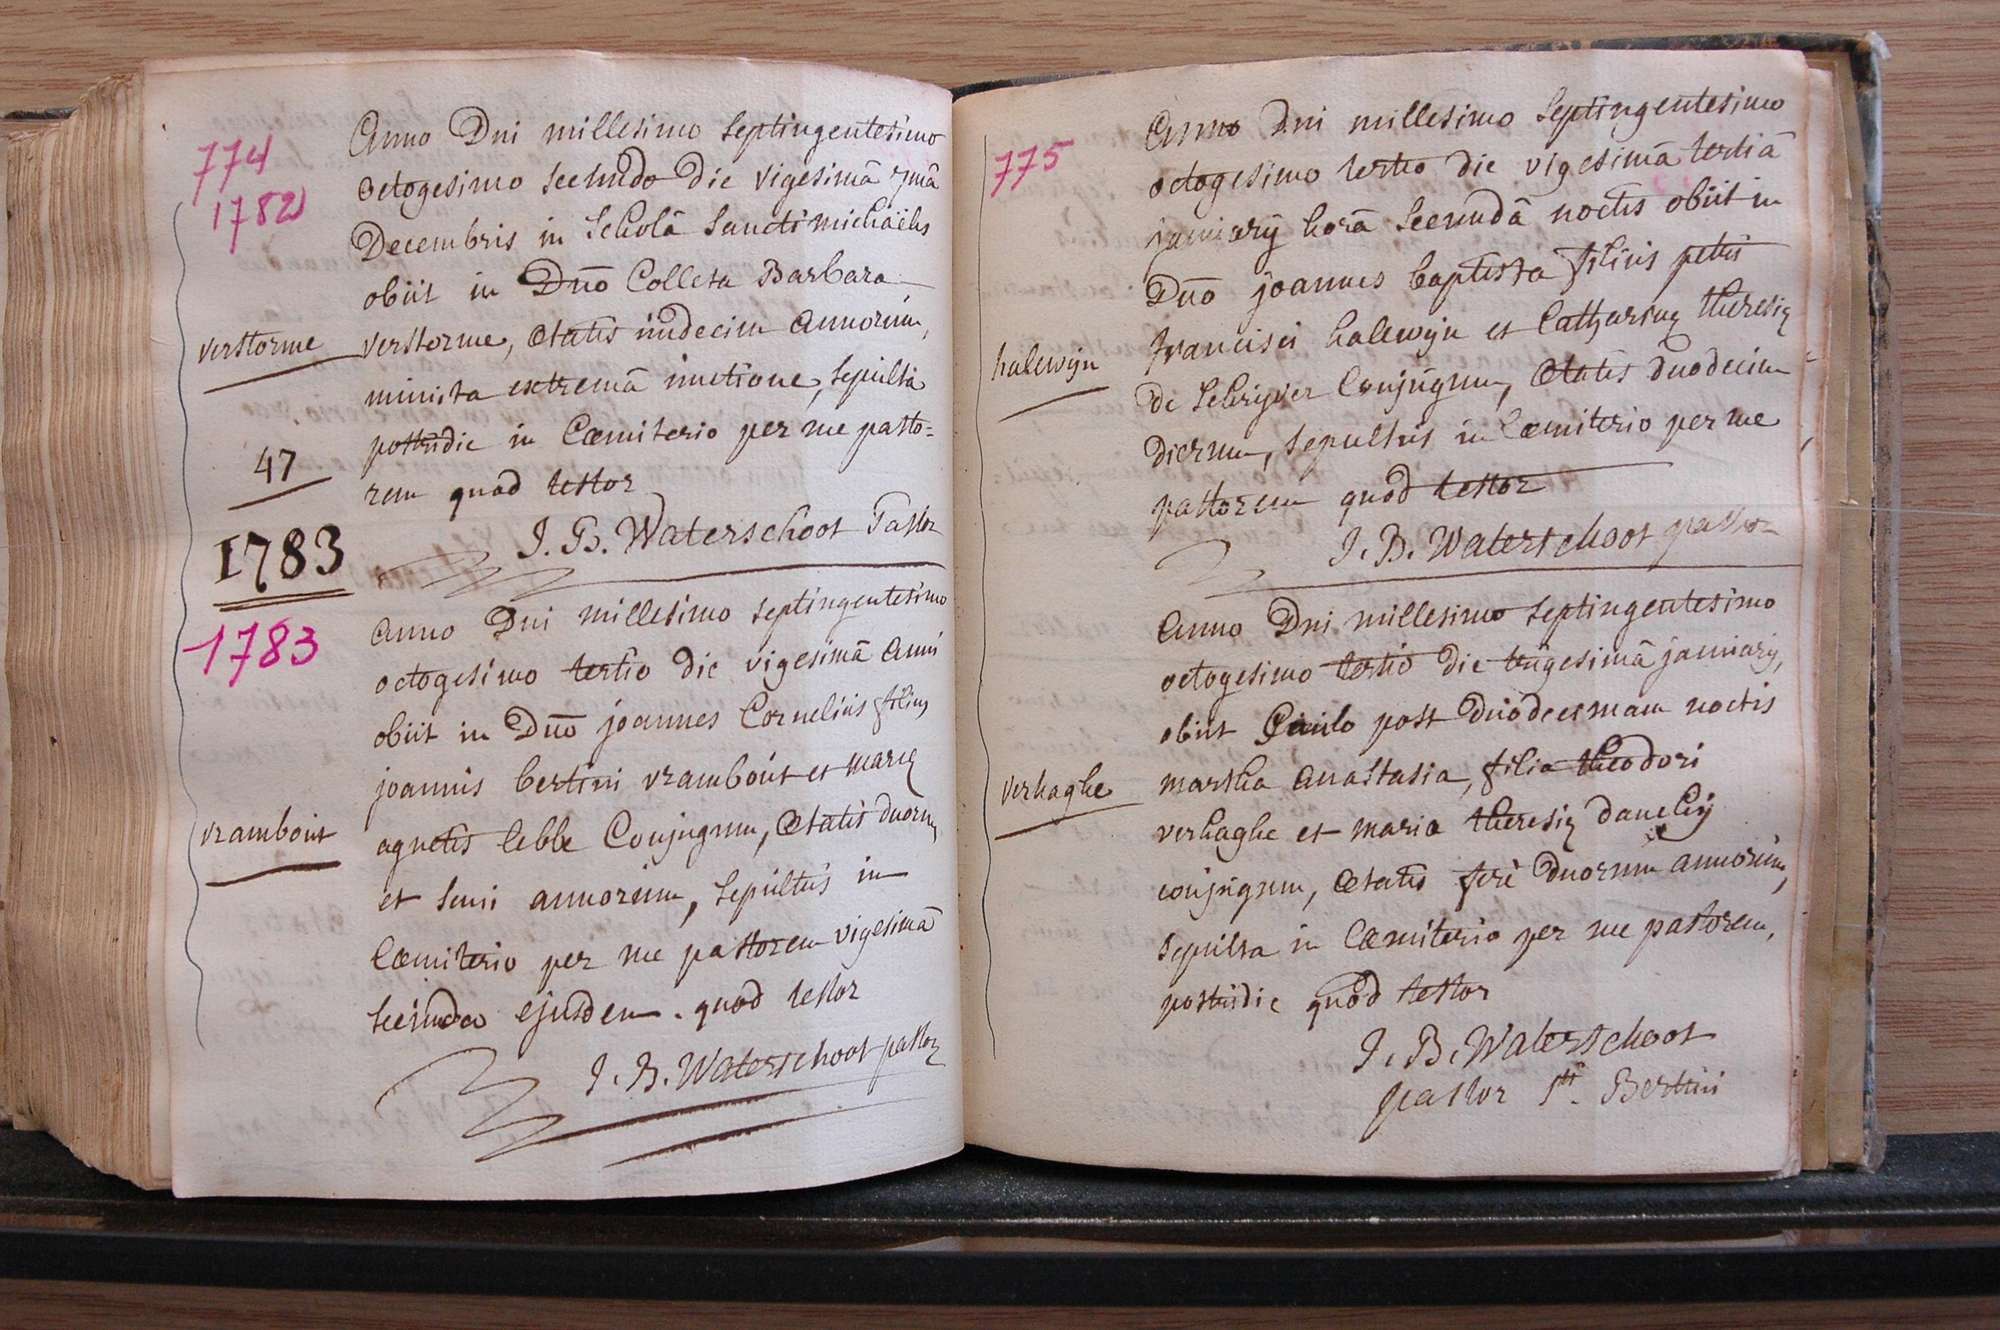 774
1782
Anno Dni millesimo septingentesimo
octogesimo secundo die vigesimâ 7mâ
Decembris in Scholâ Sancti michaëlis
obiit in Dn̄o Colleta Barbara
verstorme
verstorme, ætatis undecim annorum,
munita extremâ unctione, sepulta
postridie in Cæmiterio per me pasto=
47
rem quod testor
J. B. Waterschoot Pastor
1783
1783
Anno Dni millesimo septingentesimo
octogesimo tertio die vigesimâ anni
obiit in Dn̄o joannes Cornelius filius
joannis bertini vrambout et mariæ
vrambout
agnetis lebbe Conjugum, ætatis duorum
et semi annorum, sepultus in
Cæmiterio per me pastorem vigesimâ
secunda ejusdem. quod testor
J. B. Waterschoot pastor
775
Anno Dni millesimo septingentesimo
octogesimo tertio die vigesimâ tertiâ
januarij horâ secundâ noctis obiit in
Dn̄o joannes baptista filius petri
halewijn
francisci halewijn et Catharinæ theresiæ
De Schrijver Conjugum, ætatis duodecim
dierum, sepultus in Cæmiterio per me
pastorem quod testor
J. B. Waterschoot pastor
Anno Dni millesimo septingentesimo
octogesimo tertio die trigesimâ januarij,
obiit Paulo post duodecimam noctis
verhaghe
martha anastasia, filia theodori
verhaghe et maria theresiæ
conjugum, ætatis ferè duorum annorum,
sepulta in Cæmiterio per me pastorem,
postridie quod testor
J. B. Waterschoot
pastor Sti Bertini